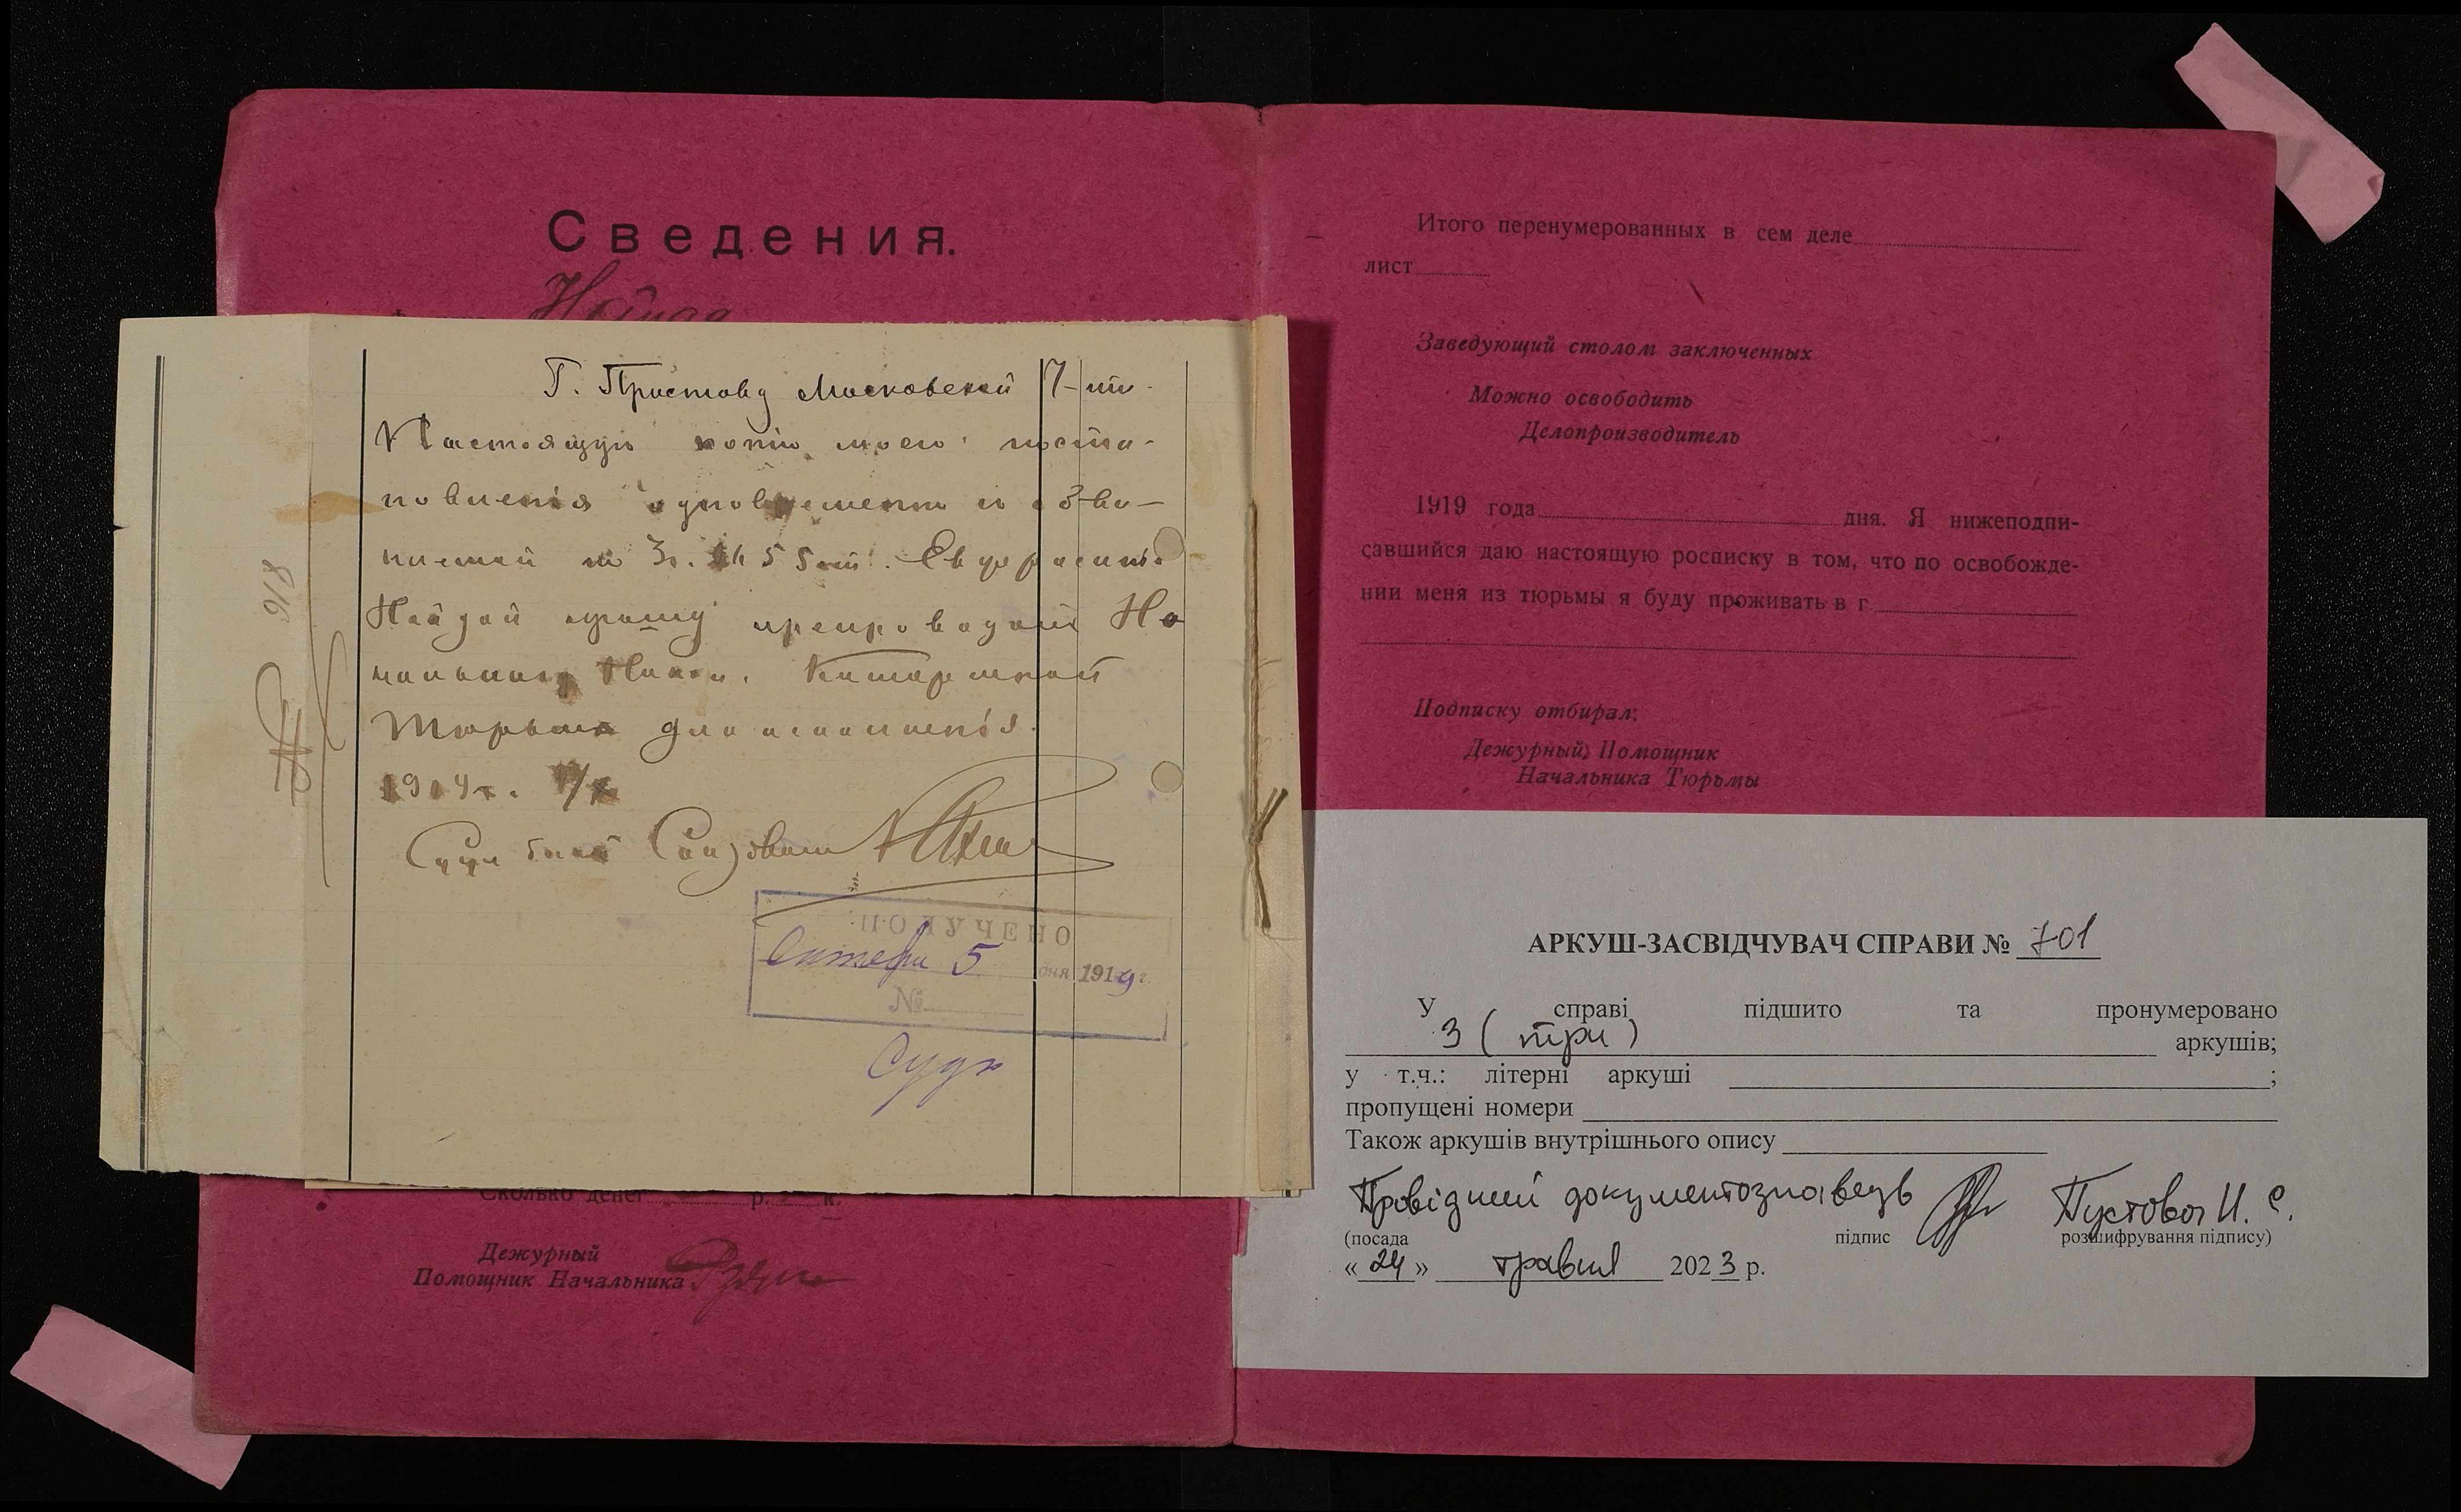 Сведения.
Г. Приставу Московской ч-ти.
Настоящую копію моего поста-
новленія одновременно с обви-
няемой по 3ч. 1655 ст. Евфросинiей
Найдой прошу препроводить На
чальнику Никол. Каторжной
тюрьмы для исполненія.
1919 г.
Судебный Следователь
ПОЛУЧЕНО
Октября 5 дня 1919 г.
№
918
Сколько денег р. к.
Дежурный
Помощник Начальника
Итого перенумерованных в сем деле
лист
Заведующий столом заключенных
Можно освободить
Делопроизводитель
1919 года дня. Я нижеподпи-
савшийся даю настоящую росписку в том, что по освобожде-
нии меня из тюрьмы я буду проживать в г
Подписку отбирал:
Дежурный Помощник
Начальника Тюрьмы
АРКУШ-ЗАСВІДЧУВАЧ СПРАВИ № 701
У справі підшито та пронумеровано
3 (три) аркушів;
у т.ч.: літерні аркуші ;
пропущені номери
Також аркушів внутрішнього опису
Провідний документознавець Пустова И. С.
(посада підпис розшифрування підпису)
« 24 » травня 2023 р.